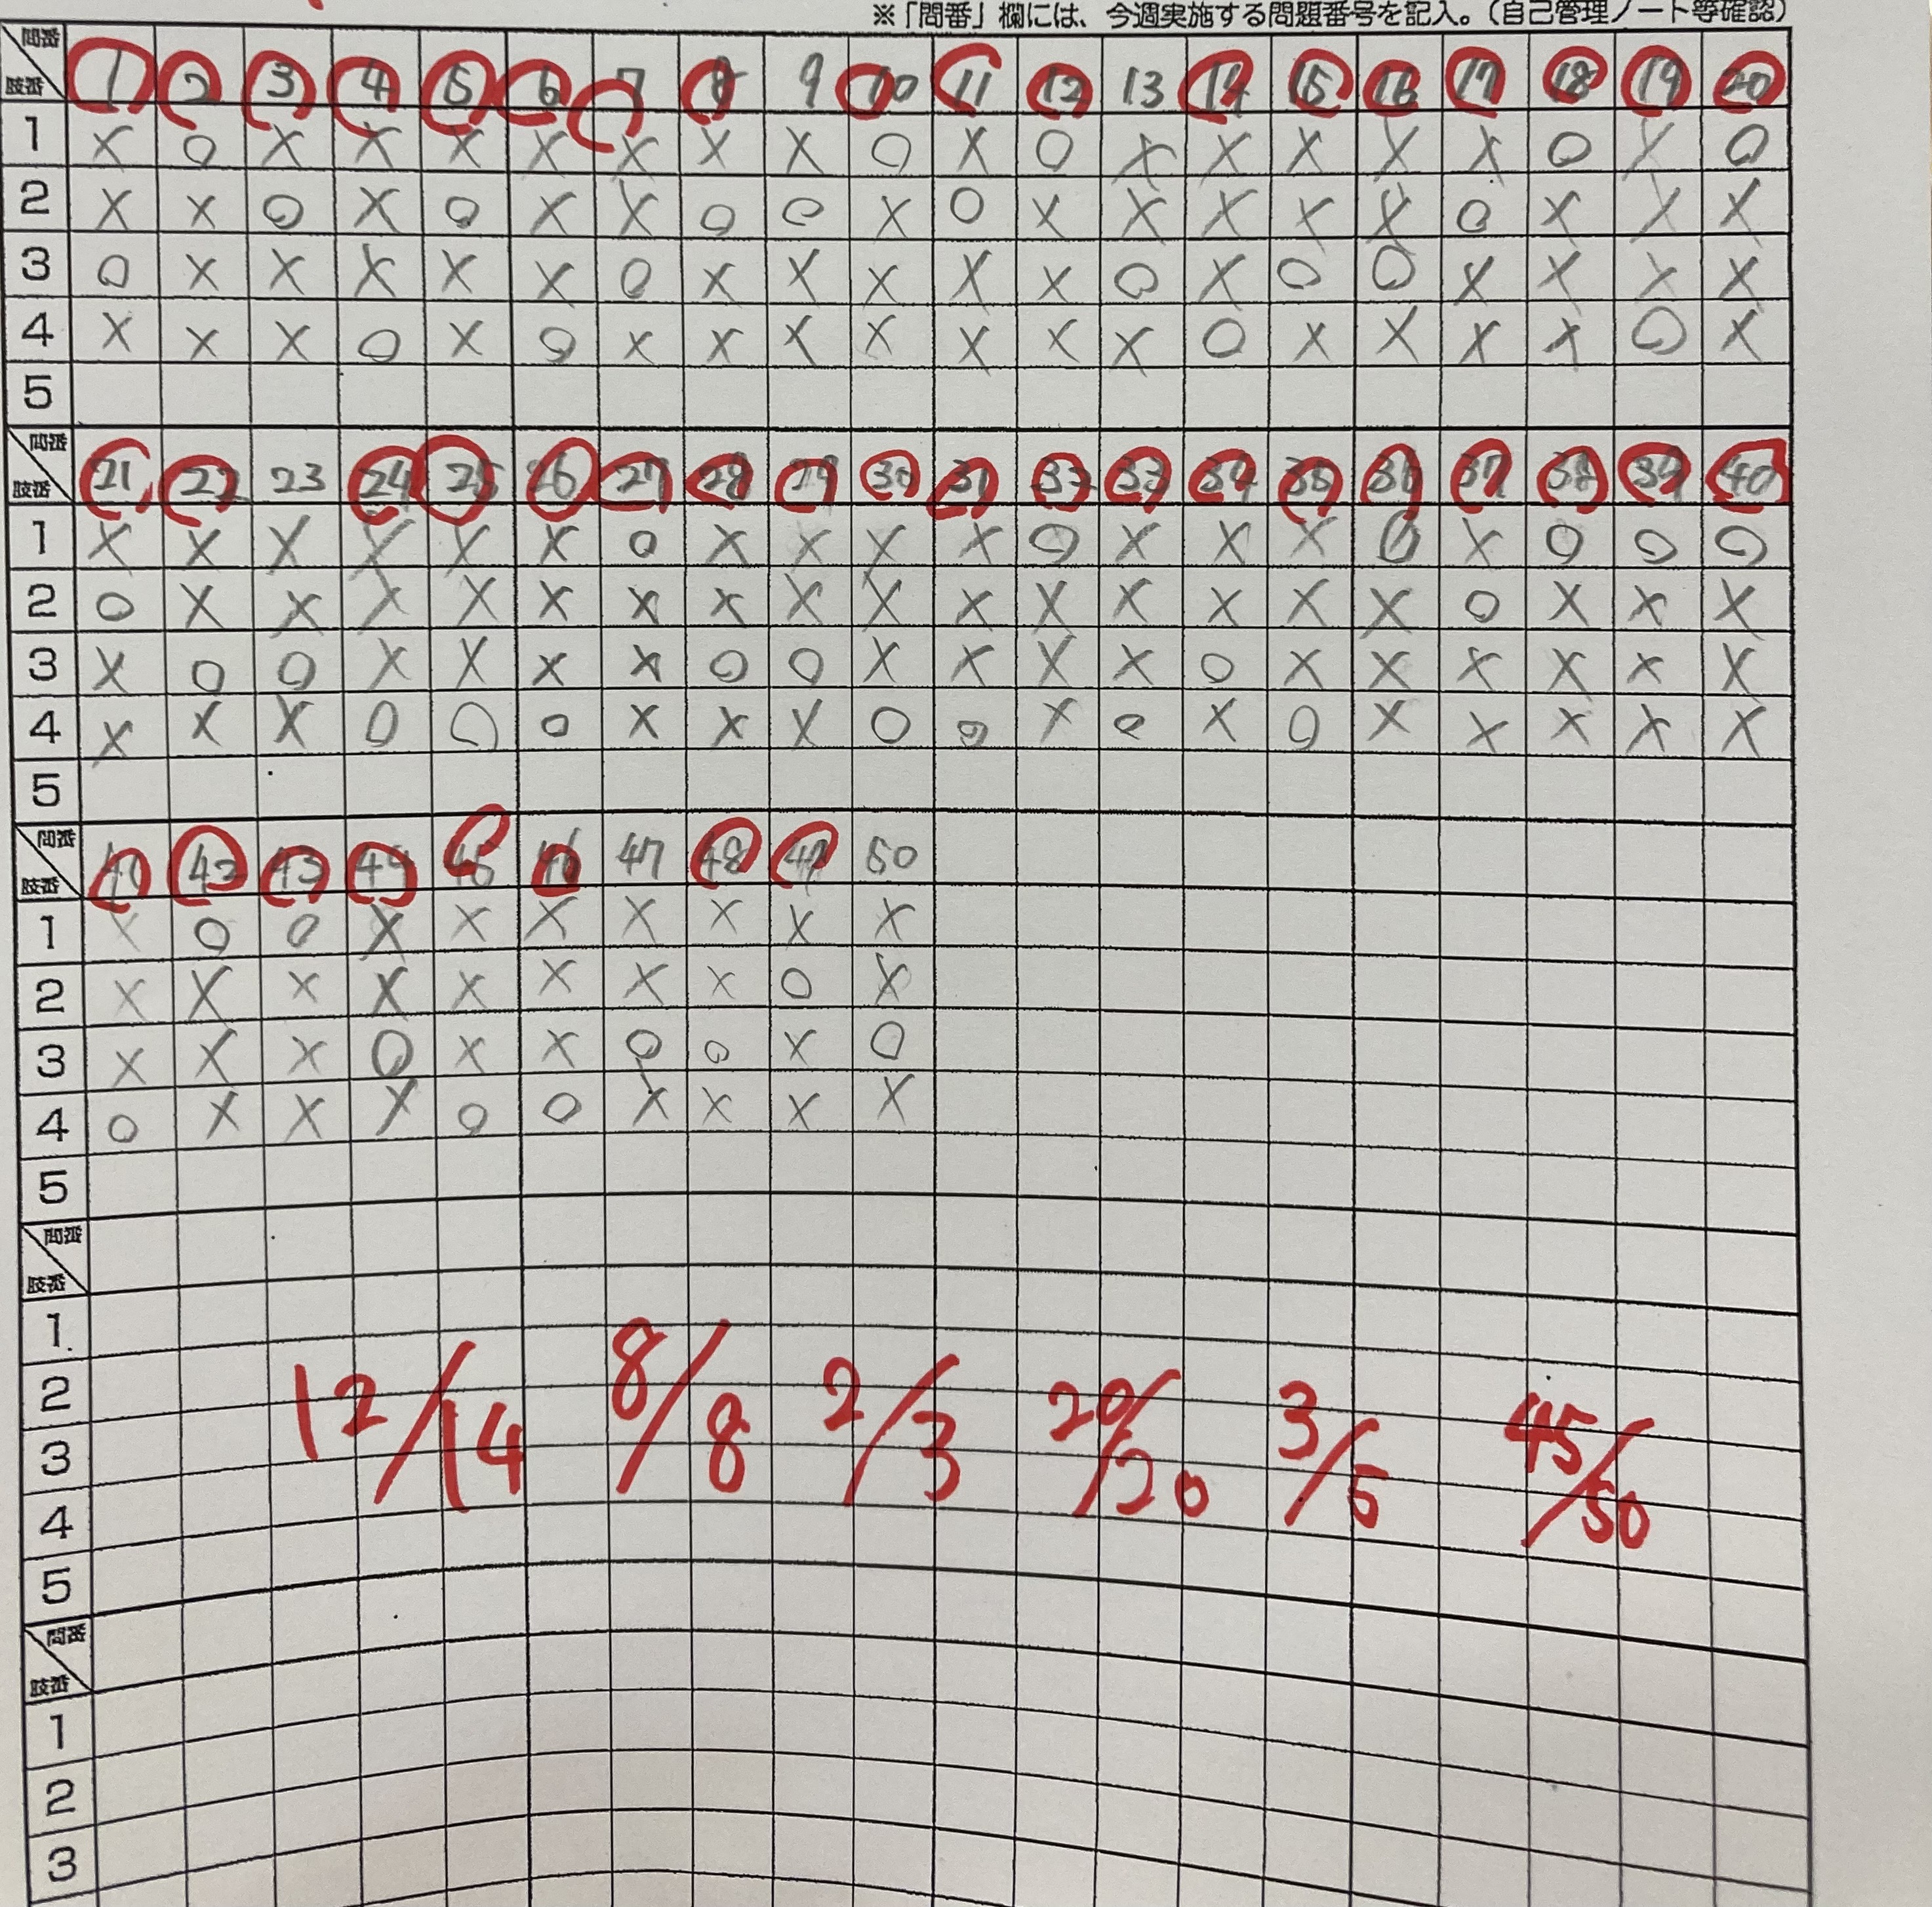 ※「問番」欄には、今週実施する問題番号を記入。(自己管理ノート等確認)
問番 肢番 1 2 3 4 5 6 7 8 9 10 11 12 13 14 15 16 17 18 19 20
1 × ○ × × × × × × × ○ × ○ × × × × × ○ × ○
2 × × ○ × ○ × × ○ ○ × ○ × × × × × ○ × × ×
3 ○ × × × × × ○ × × × × × ○ × ○ ○ × × × ×
4 × × × ○ × ○ × × × × × × × ○ × × × × ○ ×
5
問番 肢番 21 22 23 24 25 26 27 28 29 30 31 32 33 34 35 36 37 38 39 40
1 × × × × × × ○ × × × × ○ × × × ○ × ○ ○ ○
2 ○ × × × × × × × × × × × × × × × ○ × × ×
3 × ○ ○ × × × × ○ ○ × × × × ○ × × × × × ×
4 × × × ○ ○ ○ × × × ○ ○ × ○ × ○ × × × × ×
5
問番 肢番 41 42 43 44 45 46 47 48 49 50
1 × ○ ○ × × × × × × ×
2 × × × × × × × × ○ ×
3 × × × ○ × × ○ ○ × ○
4 ○ × × × ○ ○ × × × ×
5
問番 肢番
1
2
3
4
5
12/14 8/8 2/3 20/20 3/5 45/50
問番 肢番
1
2
3